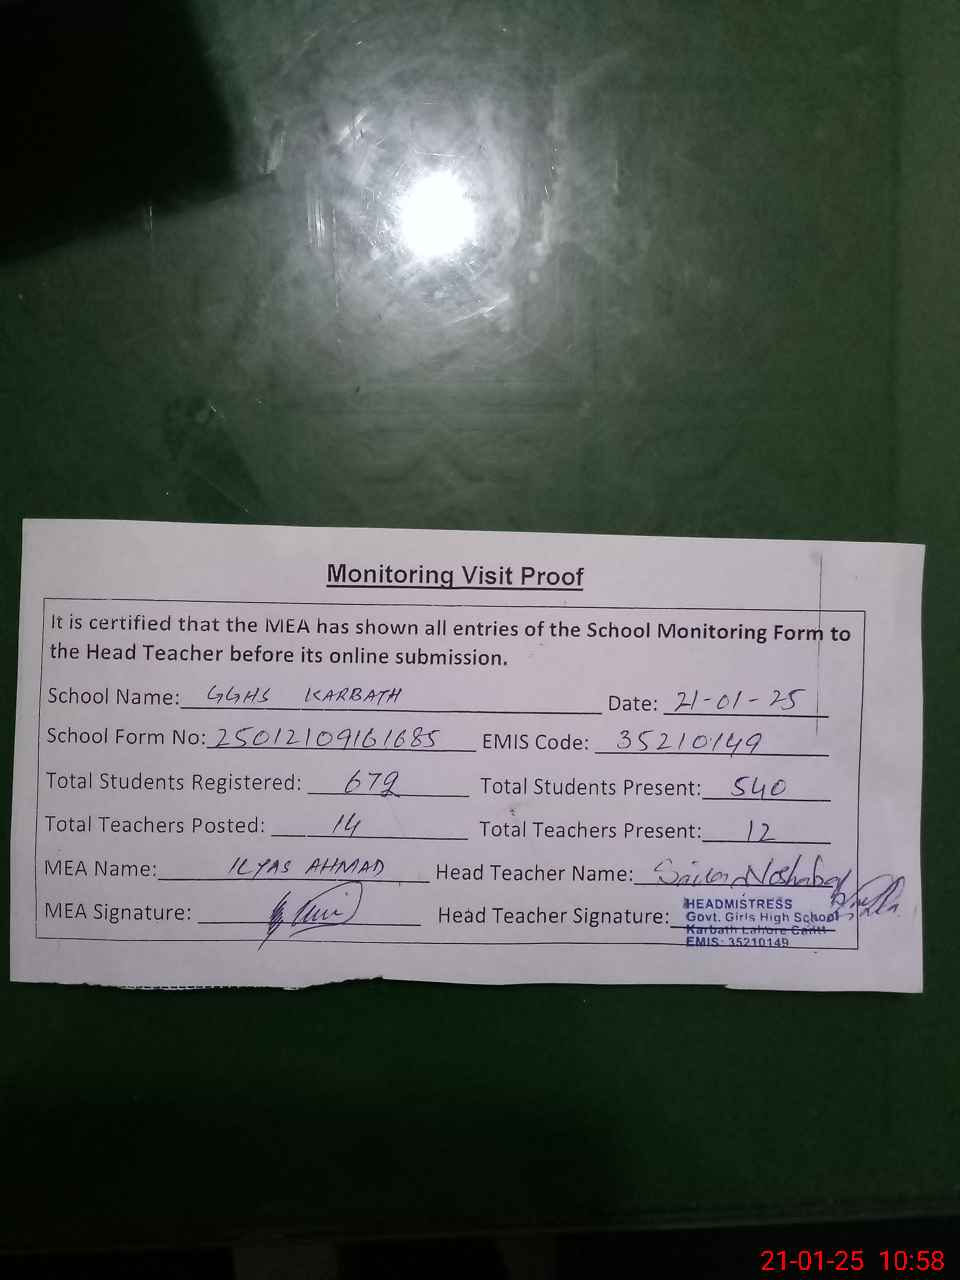 Monitoring Visit Proof
It is certified that the MEA has shown all entries of the School Monitoring Form to
the Head Teacher before its online submission.
School Name: GGHS KARBATH Date: 21-01-25
School Form No: 25012109161685 EMIS Code: 35210149
Total Students Registered: 679 Total Students Present: 540
Total Teachers Posted: 14 Total Teachers Present: 12
MEA Name: ILYAS AHMAD Head Teacher Name:
MEA Signature: Head Teacher Signature:
HEADMISTRESS
Govt. Girls High School
Karbath Lahore Cantt
EMIS: 35210149
21-01-25 10:58